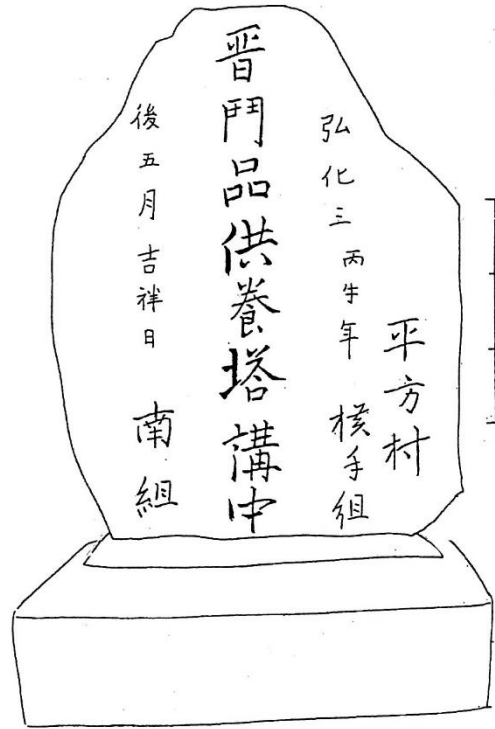 平方村
弘化三丙午年 横手組
普門品供養塔講中
後五月吉祥日 南組